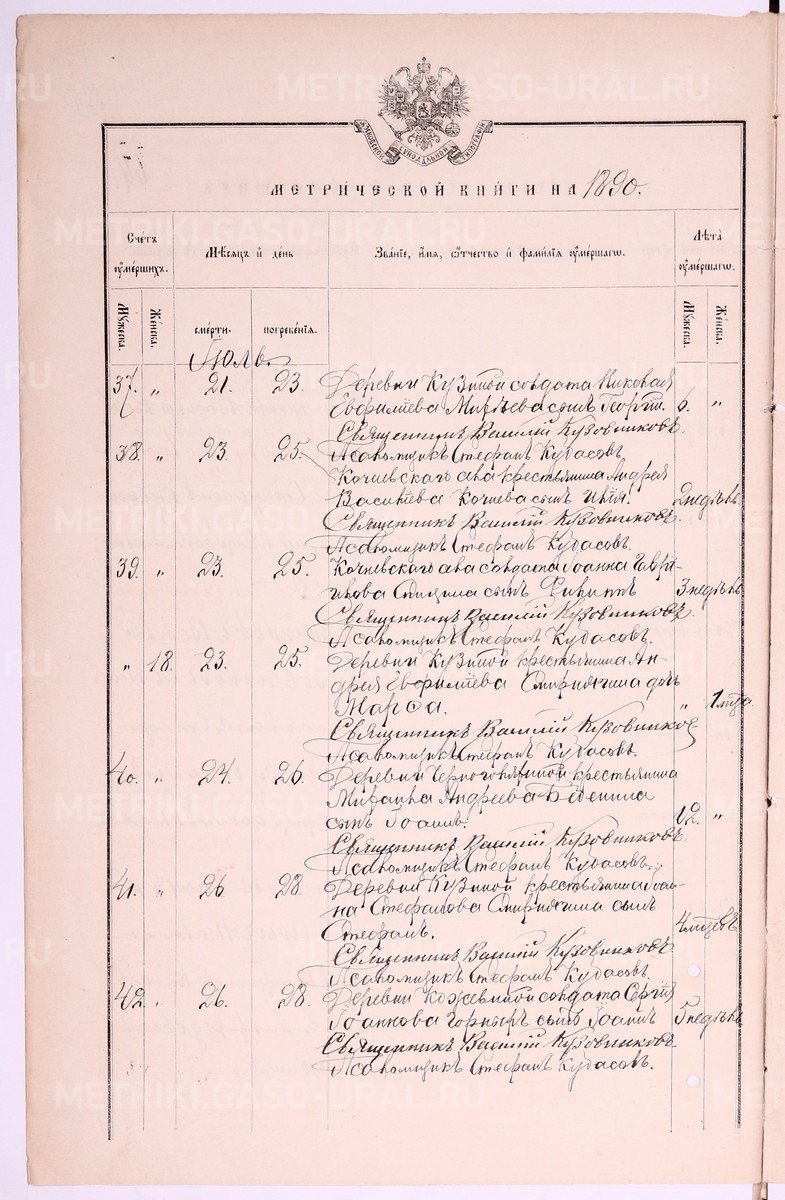 МОСКОВСКОЙ СѴНОДАЛЬНОЙ ТИПОГРАФІИ
МЕТРИЧЕСКОЙ КНИГИ НА 1890.
Счетъ умершихъ. Мѣсяцъ и день Званіе, имя, отчество и фамилія умершаго. Лѣта умершаго.
Мужеска. Женска. смерти. погребенія. Мужеска. Женска.
Іюль.
37. " 21. 23. Деревни Кузиной солдата Николая
Евфиміева сынъ Георгій. 6. "
Священникъ Василій Кузовниковъ.
Псаломщикъ Стефанъ Кудасовъ.
38. " 23. 25. Кочневскаго села крестьянина Андрея
Васильева Кочнева сынъ Илія. 2 недѣль
Священникъ Василій Кузовниковъ
Псаломщикъ Стефанъ Кудасовъ.
39. " 23. 25. Кочневскаго села солдата Іоанна Гаврі-
илова сынъ 3 недѣль
Священникъ Василій Кузовниковъ
Псаломщикъ Стефанъ Кудасовъ.
" 18. 23. 25. Деревни Кузиной крестьянина Ан-
дрея Евфиміева Смирнягина дочь
Марѳа. " 1 года
Священникъ Василій Кузовников
Псаломщикъ Стефанъ Кудасовъ.
40. " 24. 26. Деревни крестьянина
Михаила Андреева сынъ Іоаннъ. 12. "
Священникъ Василій Кузовниковъ.
Псаломщикъ Стефанъ Кудасовъ.
41. " 26. 28. Деревни Кузиной крестьянина Іоан-
на Стефанова Смирнягина сынъ
Стефанъ. 4 мѣсяцевъ
Священникъ Василій Кузовниковъ
Псаломщикъ Стефанъ Кудасовъ.
42. " 26. 28. Деревни солдата Сергія
Іоаннова сынъ Іоаннъ 5 недѣль
Священникъ Василій Кузовниковъ
Псаломщикъ Стефанъ Кудасовъ.
METRIKI.GASO-URAL.RU